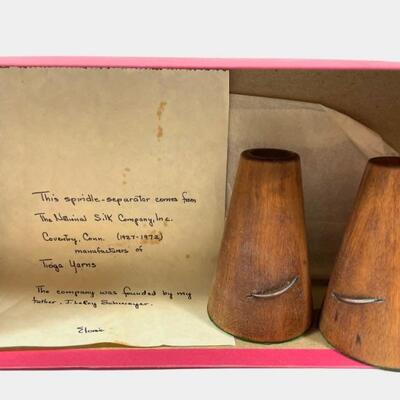 This spindle-separator comes from
The National Silk Company, Inc.
Coventry, Conn. (1927-1972)
manufacturers of
Tioga Yarns
The company was founded by my
father, J. LeRoy Schweyer.
Eloise